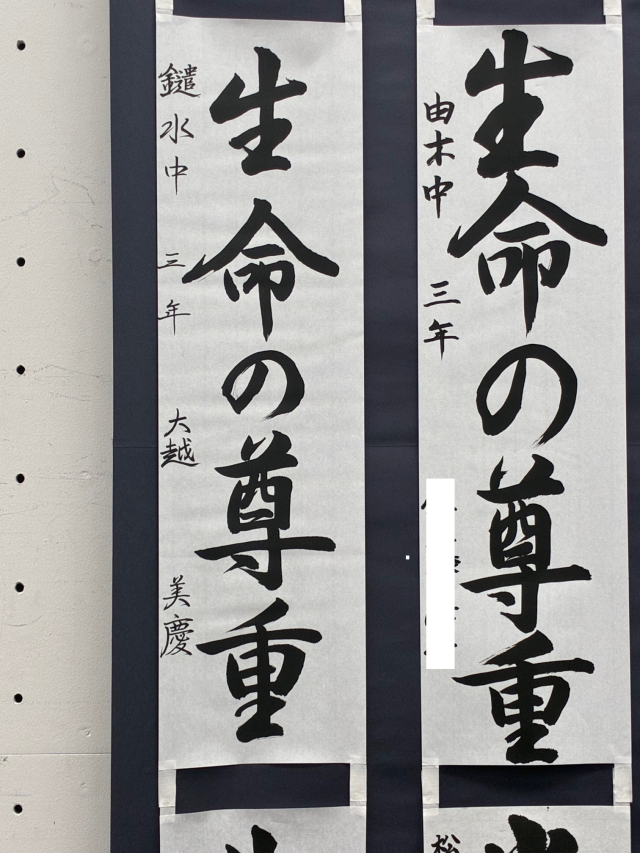 生命の尊重
由木中 三年
生命の尊重
鑓水中 三年 大越 美慶
松